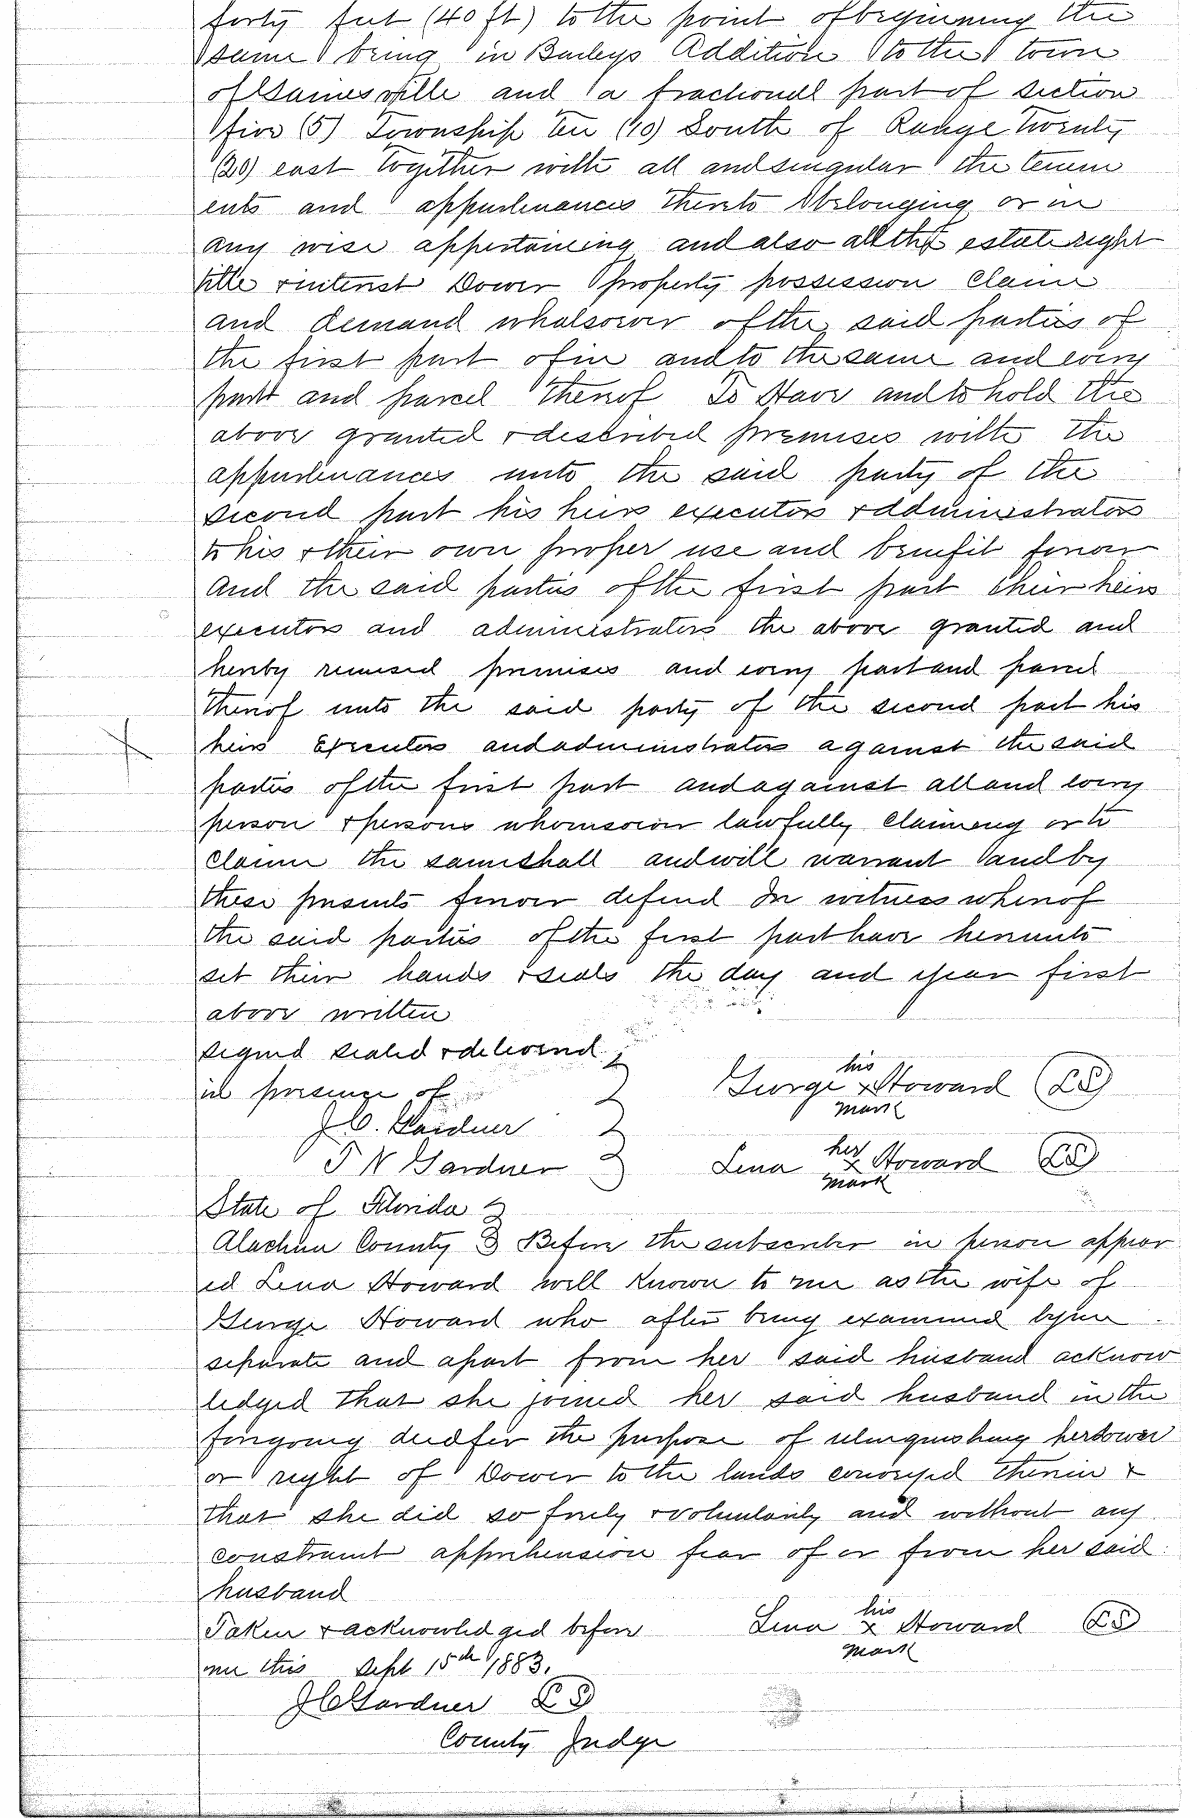 forty feet (40 ft) to the point of beginning the
same being in Baileys Addition to the town
of Gainesville and a fractionall part of section
five (5) Township Ten (10) South of Range Twenty
(20) east together with all and singular the tenem
ents and appurtenances thereto belonging or in
any wise appertaining and also all the estate right
title & interest Dower property possession Claim
and demand whatsoever of the said parties of
the first part of in and to the same and every
part and parcel thereof To Have and to hold the
above granted & described premises with the
appurtenances unto the said party of the
second part his heirs executors & administrators
to his & their own proper use and benefit forever
And the said parties of the first part their heirs
executors and administrators the above granted and
hereby remised premises and every part and parcel
thereof unto the said party of the second part his
heirs Executors and administrators against the said
parties of the first part and against all and every
person & persons whomsoever lawfully claiming or to
claim the same shall and will warrant and by
these presents forever defend In witness whereof
the said parties of the first part have hereunto
set their hands & seals the day and year first
above written
signed sealed & delivered
in presence of
his
George x Howard (LS)
mark
J.C. Gardner
T N Gardner
her
Lena x Howard (LS)
mark
State of Florida
Alachua County Before the subscriber in person appear
ed Lena Howard well known to me as the wife of
George Howard who after being examined by me
separate and apart from her said husband acknow
ledged that she joined her said husband in the
foregoing deed for the purpose of relinquishing her dower
or right of Dower to the lands conveyed therein &
that she did so freely & voluntarily and without any
constraint apprehension fear of or from her said
husband
Taken & acknowledged before
me this Sept 15th 1883.
his
Lena x Howard (LS)
mark
J C Gardner LS
County Judge